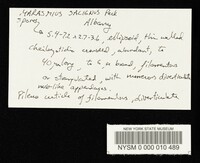 MARASMIUS SALIGNUS Peck
Spores Albany
5.9-7.2 x 2.7-3.6, ellipsoid, thin walled
cheilocystidia crowded, abundant, to
40 µ long, to 6 µ broad, filamentous
or strangulated, with numerous diverticulate
rod-like appendages.
Pileus cuticle of filamentous, diverticulate
NEW YORK STATE MUSEUM
NYSM 0 000 010 489